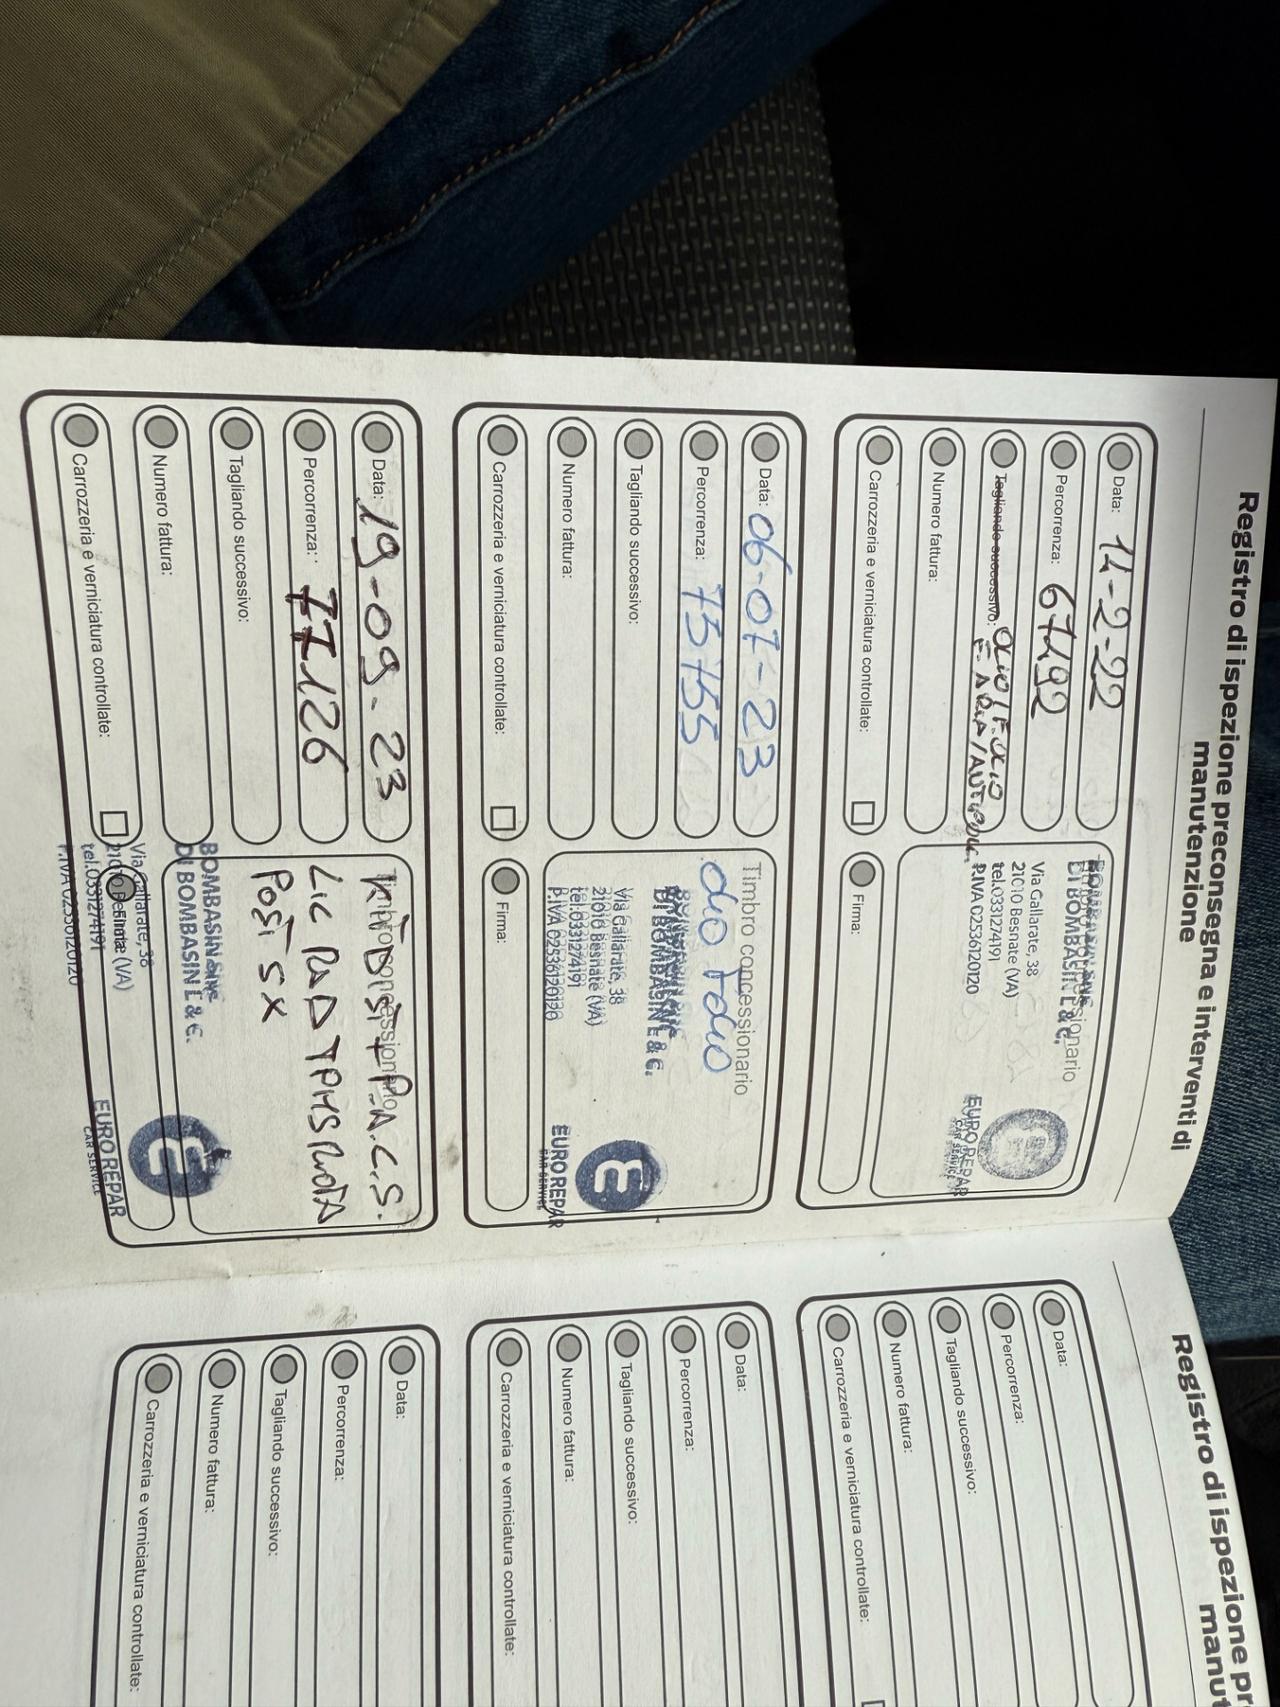 Registro di ispezione preconsegna e interventi di
manutenzione
Data: 14-2-22
Percorrenza: 67492
Tagliando successivo: OLIO/F.OLIO
F. ARIA/ANTIPOLL.
Numero fattura:
Carrozzeria e verniciatura controllate:
BOMBASIN SNC
DI BOMBASIN E. & C.
Via Gallarate, 38
21010 Besnate (VA)
tel.0331274191
P.IVA 02536120120
EUROREPAR
CAR SERVICE
Firma:
Data: 06-07-23
Percorrenza: 73755
Tagliando successivo:
Numero fattura:
Carrozzeria e verniciatura controllate:
Timbro concessionario
olio
DI BOMBASIN E. & C.
Via Gallarate, 38
21010 Besnate (VA)
tel.0331274191
P.IVA 02536120120
EUROREPAR
CAR SERVICE
Firma:
Data: 19-09-23
Percorrenza: 77126
Tagliando successivo:
Numero fattura:
Carrozzeria e verniciatura controllate:
Timbro concessionario
KIT DIST + P.A. C.S.
RUOTA
POST SX
BOMBASIN SNC
DI BOMBASIN E. & C.
Via Gallarate, 38
21010 Besnate (VA)
tel.0331274191
P.IVA 02536120120
EUROREPAR
CAR SERVICE
Firma:
Registro di ispezione pr
manut
Data:
Percorrenza:
Tagliando successivo:
Numero fattura:
Carrozzeria e verniciatura controllate:
Data:
Percorrenza:
Tagliando successivo:
Numero fattura:
Carrozzeria e verniciatura controllate:
Data:
Percorrenza:
Tagliando successivo:
Numero fattura:
Carrozzeria e verniciatura controllate: